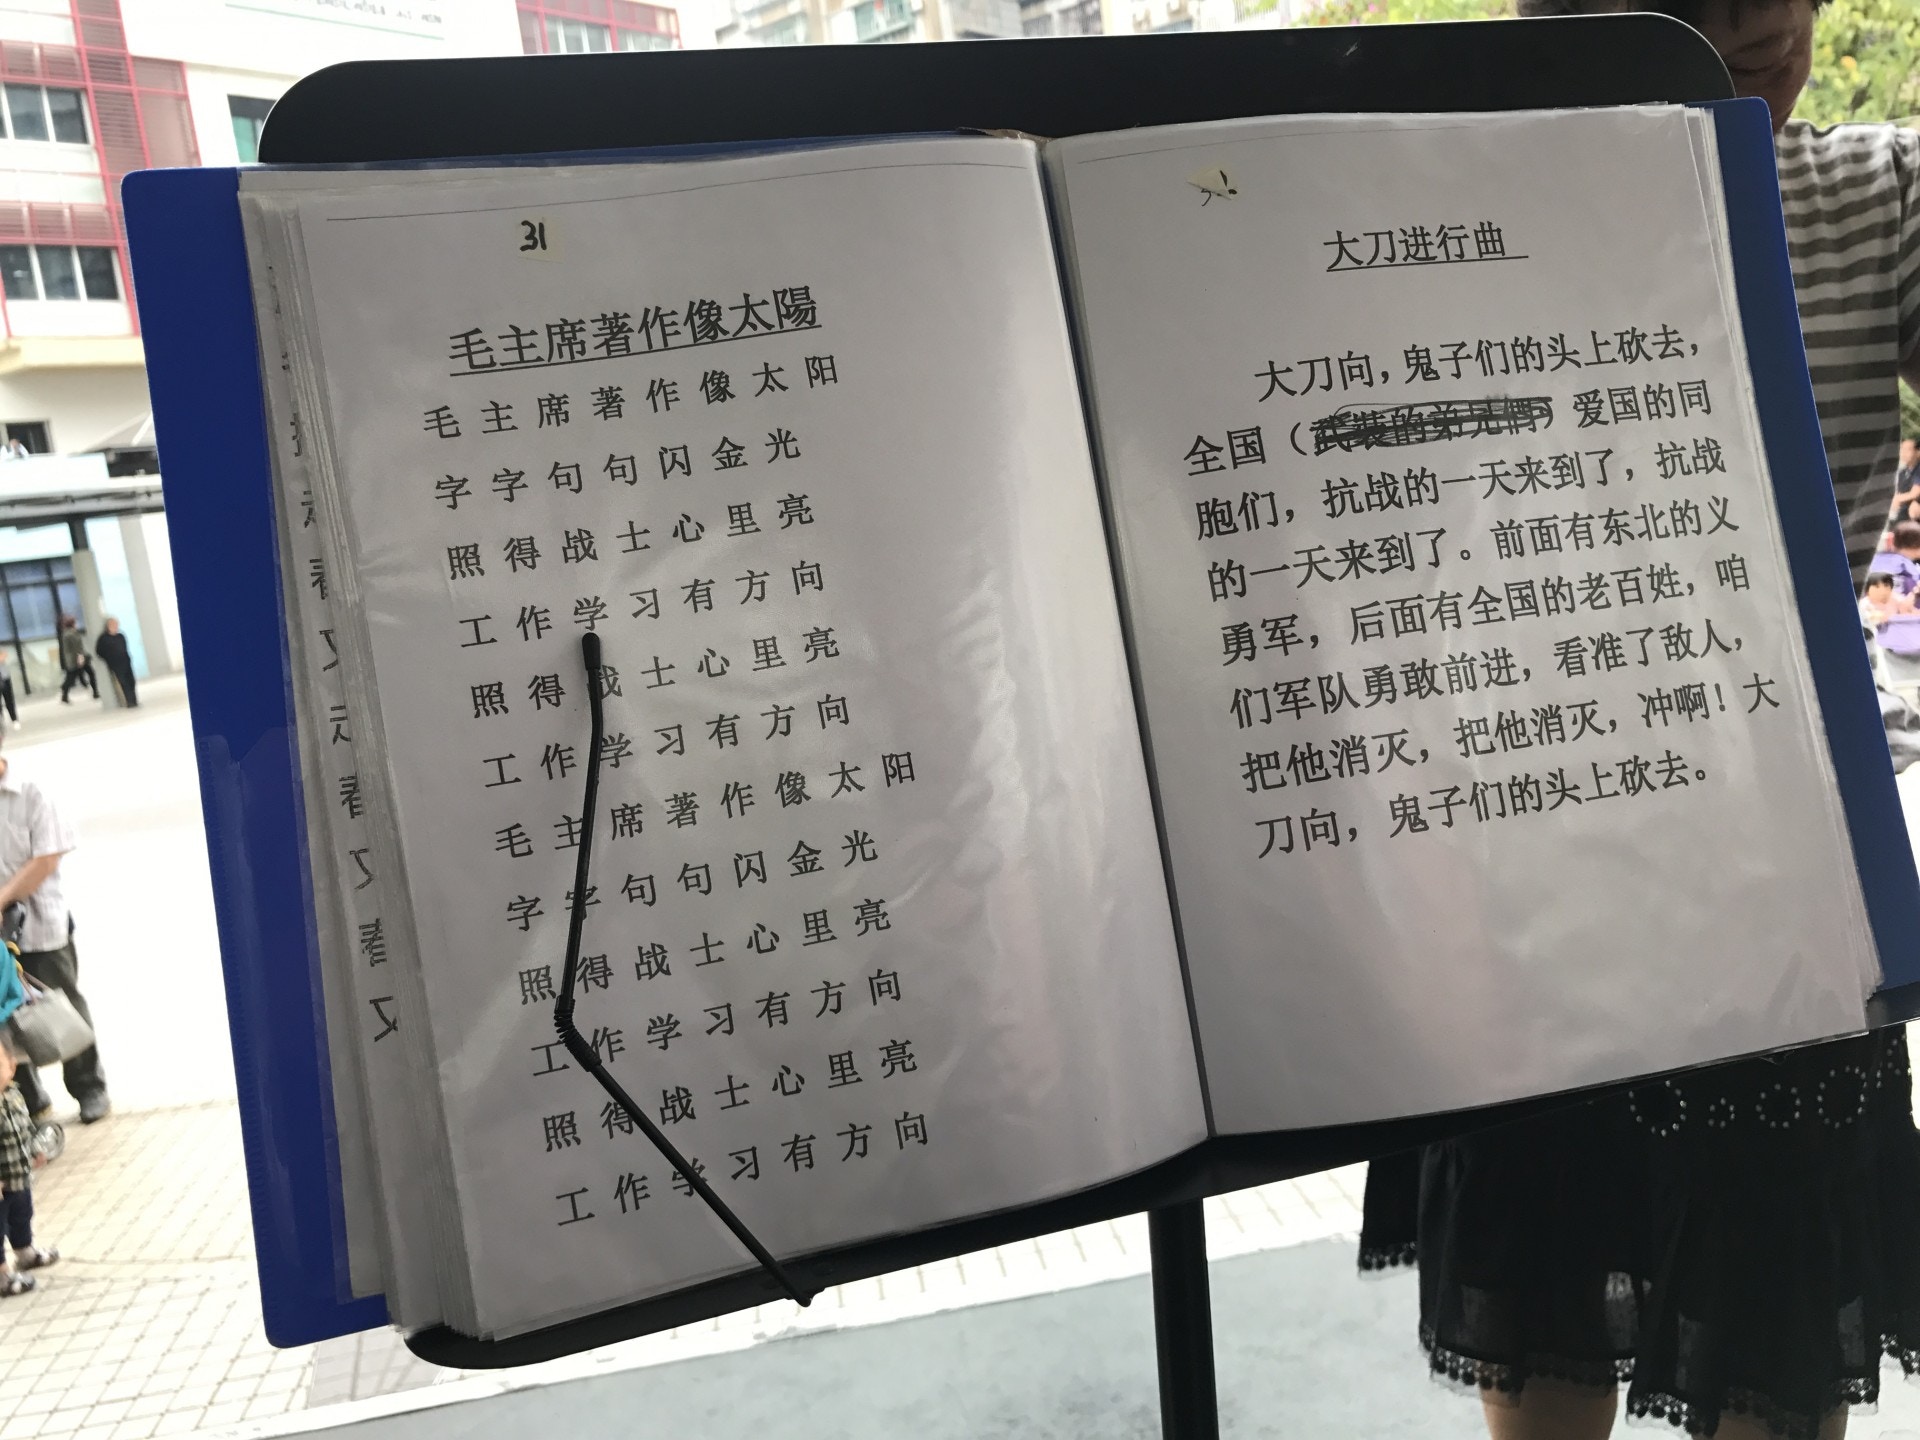 31
毛主席著作像太陽
毛主席著作像太阳
字字句句闪金光
照得战士心里亮
工作学习有方向
照得战士心里亮
工作学习有方向
毛主席著作像太阳
字字句句闪金光
照得战士心里亮
工作学习有方向
照得战士心里亮
工作学习有方向
大刀进行曲
大刀向，鬼子们的头上砍去，
全国（武裝的弟兄們）爱国的同
胞们，抗战的一天来到了，抗战
的一天来到了。前面有东北的义
勇军，后面有全国的老百姓，咱
们军队勇敢前进，看准了敌人，
把他消灭，把他消灭，冲啊！大
刀向，鬼子们的头上砍去。